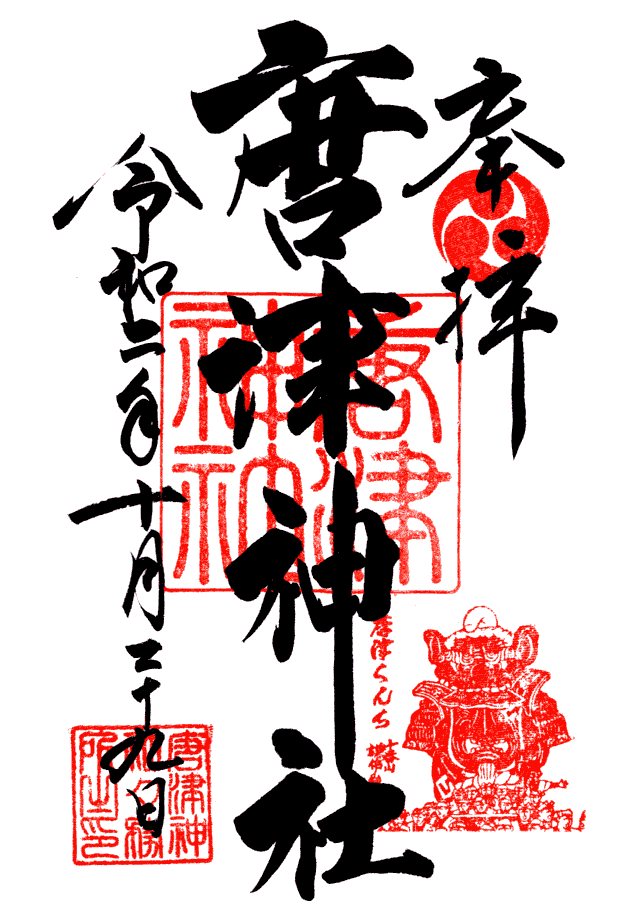 奉拝
唐津神社
令和二年十月二十九日
唐津神社
唐津くんち
唐津神社社務所之印